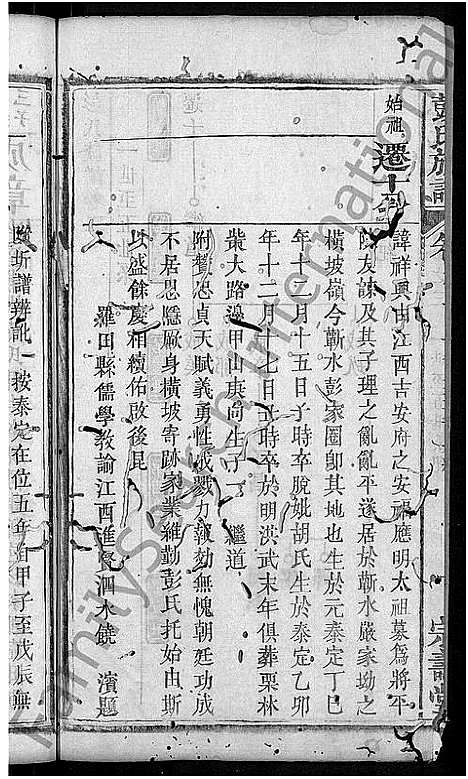 彭氏族譜
始祖
遷十
諱祥興由江西吉安府之安福應明太祖募爲將平
陳友諒及其子理之亂亂平遂居於蘄水嚴家坳之
橫坡嶺今蘄水彭家圈卽其地也生於元泰定丁巳
年十二月十五日子時卒脫妣胡氏生於泰定乙卯
年十二月十七日丑時卒於明洪武末年俱葬栗林
柴大路邊甲山庚向生子一 繼道
附贊忠貞天賦義勇性成戮力報効無愧朝廷功成
不居思隱厥身橫坡寄跡家業維勤彭氏托始由斯
以盛餘慶相續佑啟後昆
羅田縣儒學教諭江西進賢泗水饒 濱題
附圻譜辨訛一按泰定在位五年自甲子至戊辰無
FamilySearch International